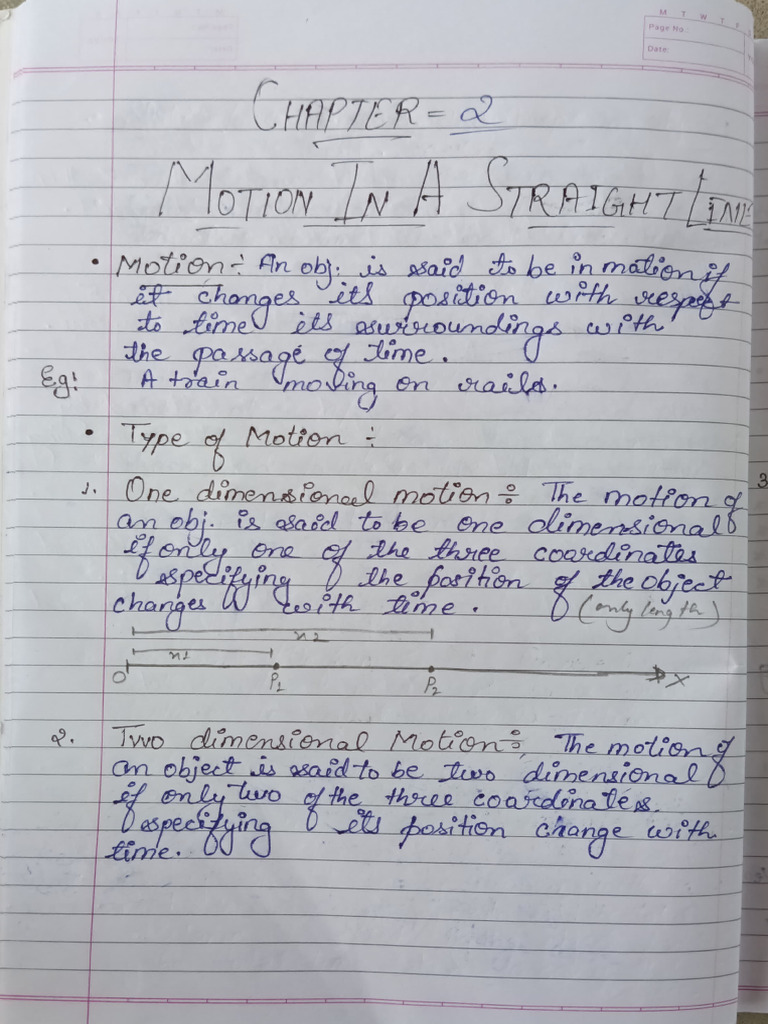 M T W T F S
Page No.:
Date:
CHAPTER = 2
MOTION IN A STRAIGHT LINE
• Motion ÷ An obj. is said to be in motion if
it changes its position with respect
to time its surroundings with
the passage of time.
Eg: A train moving on rails.
• Type of Motion ÷
1. One dimensional motion ÷ The motion of
an obj. is said to be one dimensional
if only one of the three coordinates
specifying the position of the object
changes with time. (only length)
x2
x1
O P1 P2 X
2. Two dimensional Motion ÷ The motion of
an object is said to be two dimensional
if only two of the three coordinates
specifying its position change with
time.
3